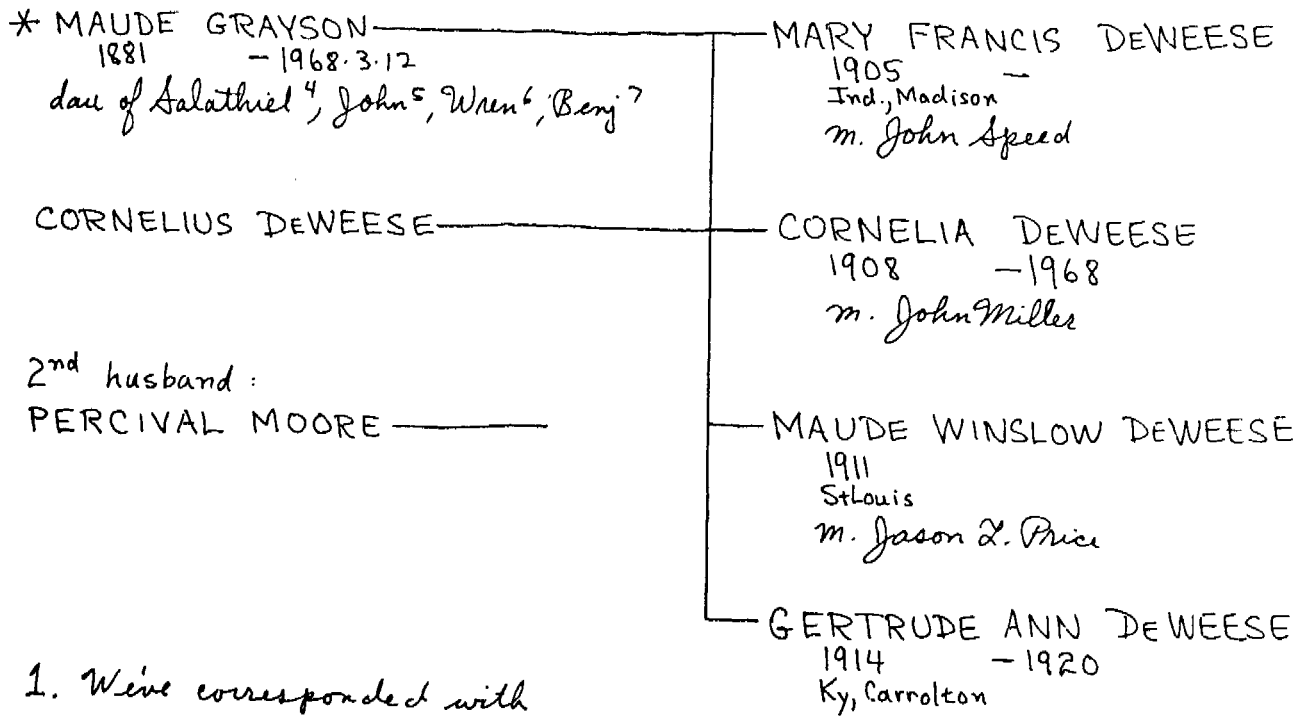 * MAUDE GRAYSON
1881 - 1968.3.12
dau of Salathiel 4, John 5, Wren 6, Benj 7
CORNELIUS DEWEESE
2nd husband :
PERCIVAL MOORE
1. We've corresponded with
MARY FRANCIS DEWEESE
1905 -
Ind., Madison
m. John Speed
CORNELIA DEWEESE
1908 - 1968
m. John Miller
MAUDE WINSLOW DEWEESE
1911
St Louis
m. Jason L. Price
GERTRUDE ANN DEWEESE
1914 - 1920
Ky, Carrolton